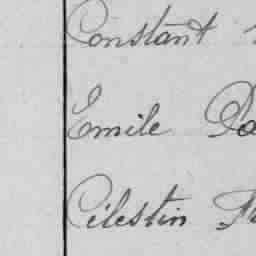 Constant
Emile
Célestin